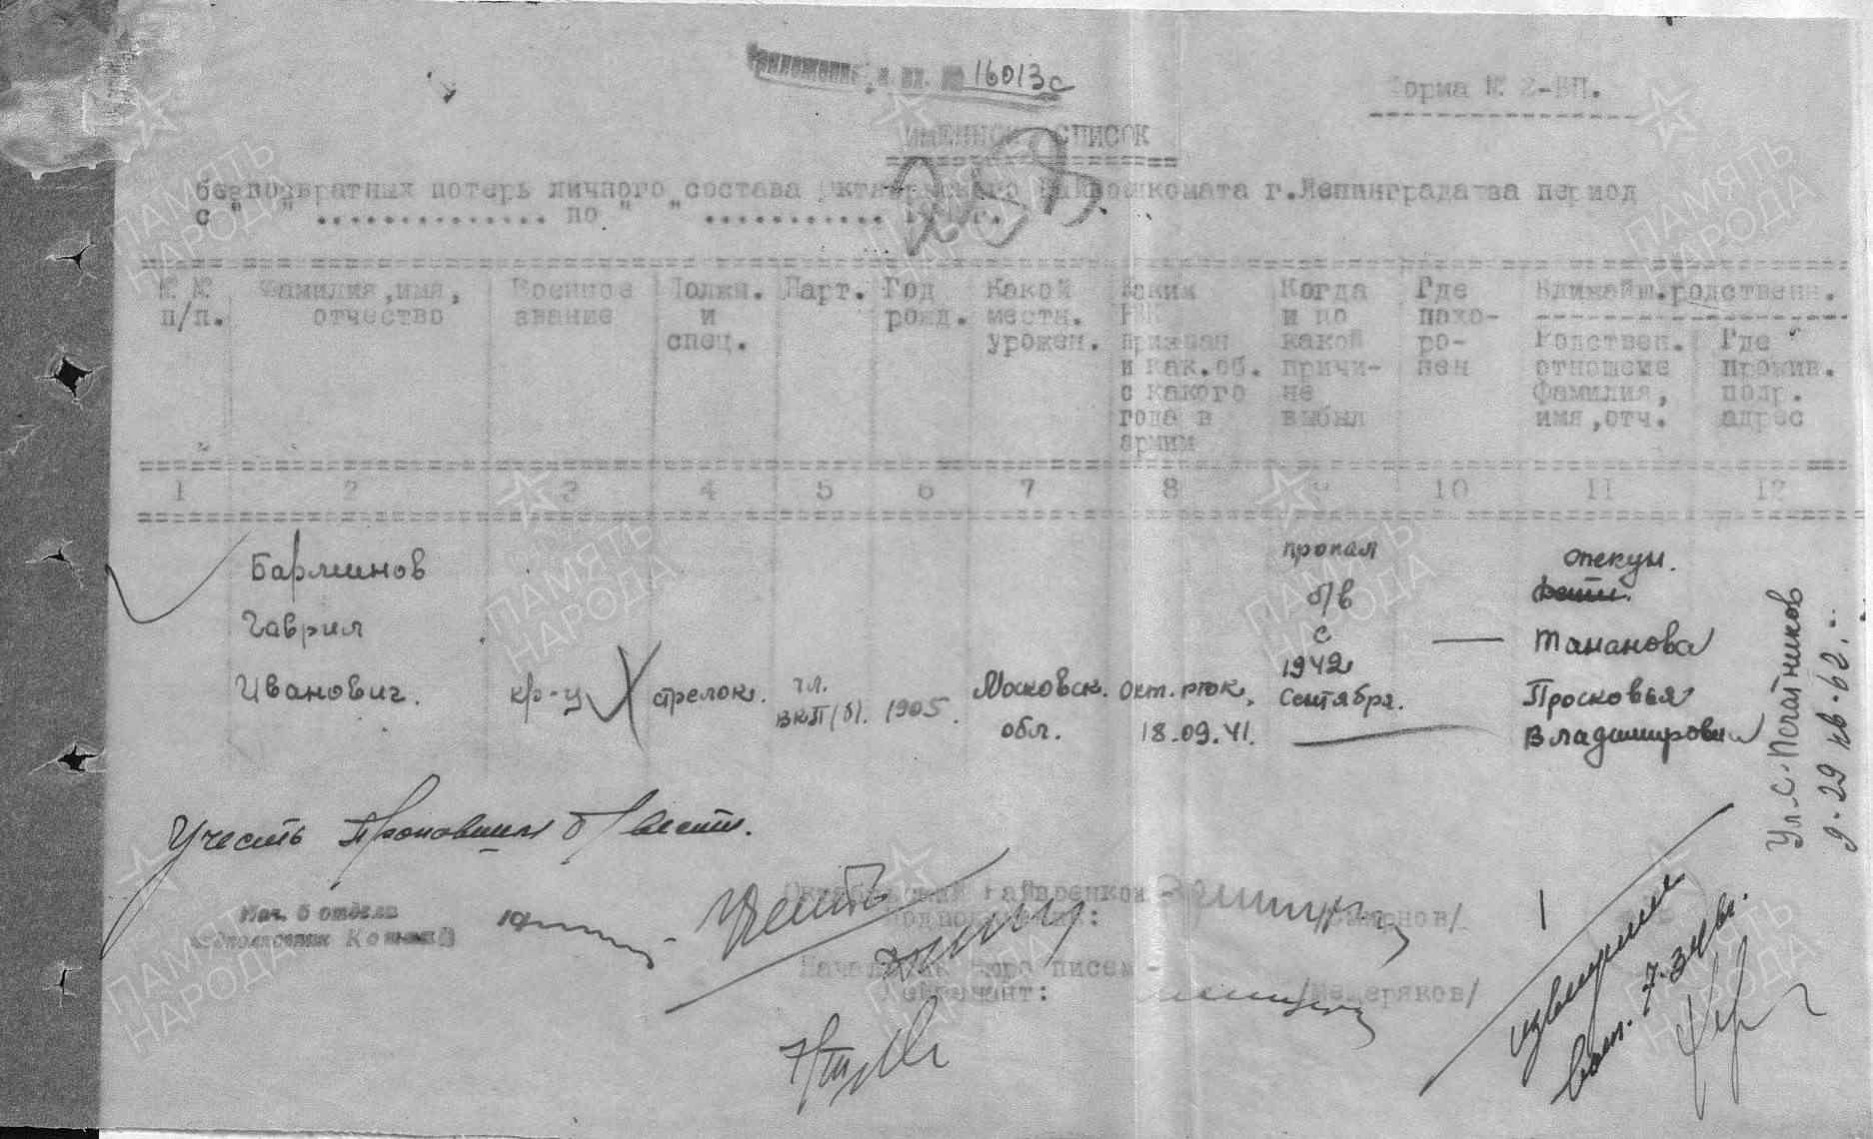 Приложение к вх. № 16013с
Форма № 2-БП.
ИМЕННОЙ СПИСОК
безвозвратных потерь личного состава Октябрьского Райвоенкомата г.Ленинграда за период
с " " .............. по " " ........... г.
№ № п/п.
Фамилия,имя, отчество
Военное звание
Должн. и спец.
Парт.
Год рожд.
Какой местн. урожен.
Каким РВК призван и как.об. с какого года в армии
Когда и по какой причине выбыл
Где похо-ро-нен
Ближайш.родственн.
Родствен. отношеие Фамилия, имя,отч.
Где прожив. подр. адрес
1 2 3 4 5 6 7 8 9 10 11 12
Бармынов
Гаврил
Иванович.
кр-ц
стрелок.
чл. ВКП/б/.
1905.
Московск. обл.
Окт. РВК, 18.09.41.
пропал б/в с 1942 Сентября.
—
опекун.
Тананова
Просковья
Владимировна
Ул. С-Печатников
д-29 кв-62.
Учесть Пропавшим б/вести.
Нач. 5 отдела
Октябрьский Райвоенком -
Подполковник:
/
Начальник бюро писем -
Лейтенант: /Мещеряков/
извещение
7.
ПАМЯТЬ НАРОДА